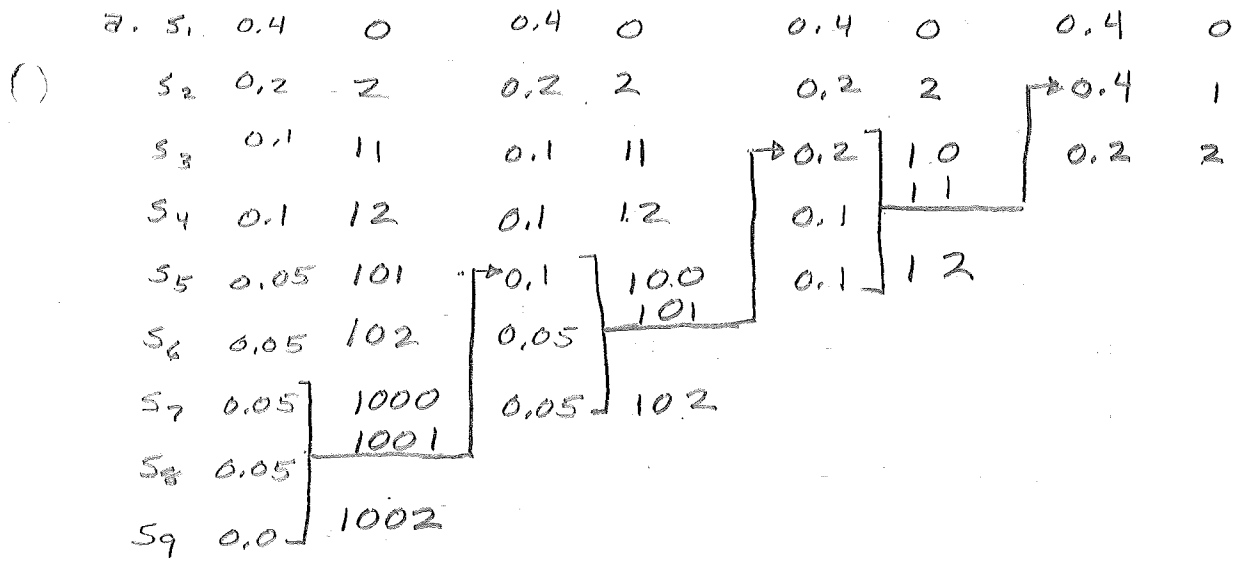 a. S1 0.4 0 0.4 0 0.4 0 0.4 0
( ) S2 0.2 2 0.2 2 0.2 2 0.4 1
S3 0.1 11 0.1 11 0.2 10 0.2 2
11
S4 0.1 12 0.1 12 0.1
S5 0.05 101 0.1 100 0.1 12
101
S6 0.05 102 0.05
S7 0.05 1000 0.05 102
1001
S8 0.05
S9 0.0 1002